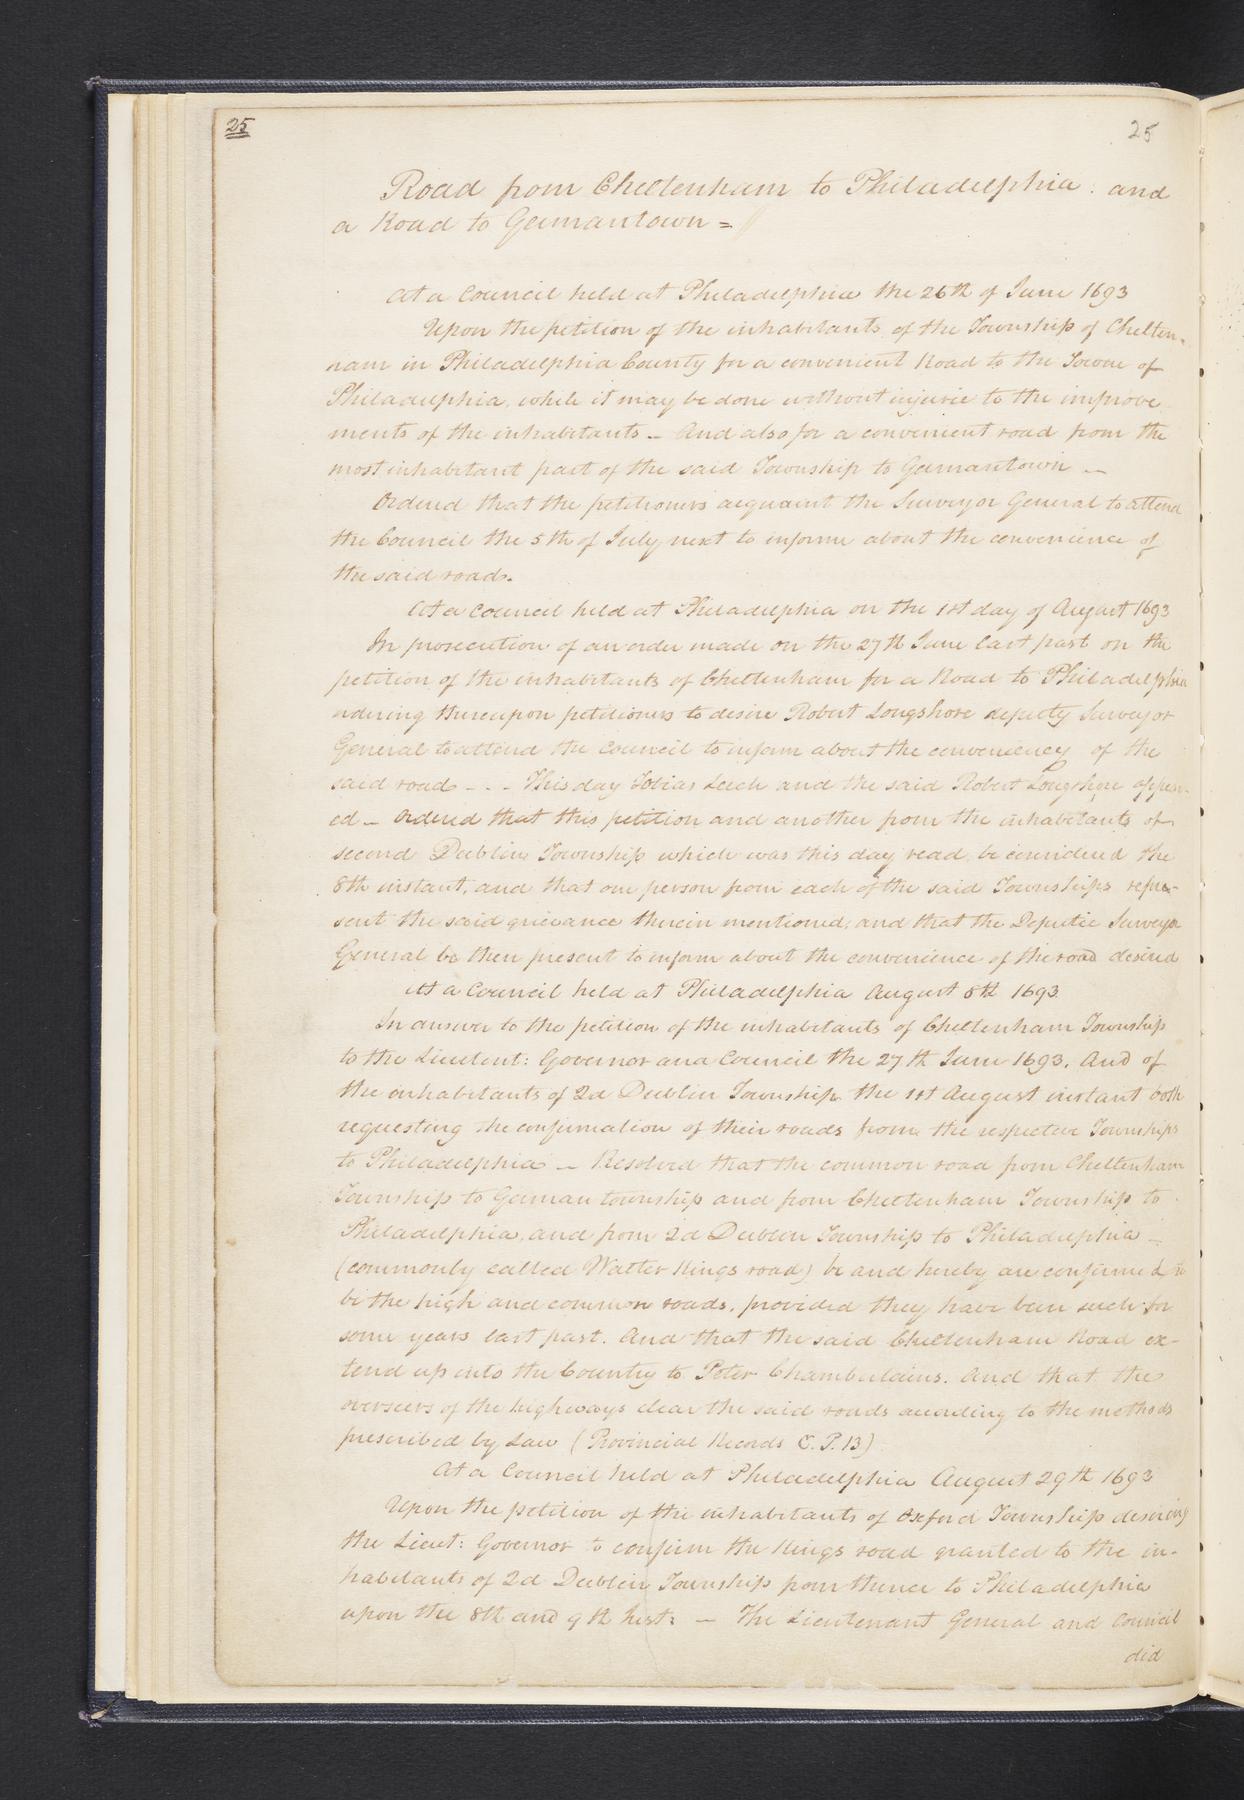 25
25
Road from Cheltenham to Philadelphia : and
a Road to Germantown =
At a Council held at Philadelphia the 26th of June 1693
Upon the petition of the inhabitants of the Township of Chelten-
nam in Philadelphia County for a convenient Road to the Towne of
Philadelphia, while it may be done without injurie to the improve
ments of the inhabitants – And also for a convenient road from the
most inhabitant part of the said Township to Germantown –
Ordered that the petitioners acquaint the Surveyor General to attend
the Council the 5th of July next to informe about the convenience of
the said roads.
At a Council held at Philadelphia on the 1st day of August 1693
In prosecution of an order made on the 27th June last past on the
petition of the inhabitants of Cheltenham for a Road to Philadelphia
ordering thereupon petitioners to desire Robert Longshore deputy Surveyor
General to attend the Council to inform about the conveniency of the
said road - - - This day Tobias Leech and the said Robert Longshore appear-
ed – Ordered that this petition and another from the inhabitants of
second Dublin Township which was this day read, be considered the
8th instant, and that one person from each of the said Townships repre-
sent the said grievance therein mentioned, and that the Deputie Surveyor
General be then present to inform about the convenience of the road desired
At a Council held at Philadelphia August 8th 1693
In answer to the petition of the inhabitants of Cheltenham Township
to the Lieutent: Governor and Council the 27th June 1693. And of
the inhabitants of 2d Dublin Township the 1st August instant both
requesting the confirmation of their roads from the respective Townships
to Philadelphia – Resolved that the common road from Cheltenham
Township to German township and from Cheltenham Township to
Philadelphia, and from 2d Dublin Township to Philadelphia –
(commonly called Walter Kings road) be and hereby are confirmed to
be the high and common roads, provided they have been such for
some years last past. And that the said Cheltenham Road ex-
tend up into the Country to Peter Chamberlains. And that the
overseers of the highways clear the said roads according to the methods
prescribed by Law (Provincial Records C. P. 13)
At a Council held at Philadelphia August 29th 1693
Upon the petition of the inhabitants of Oxford Township desiring
the Lieut: Governor to confirm the Kings road granted to the in-
habitants of 2d Dublin Township from thence to Philadelphia
upon the 8th and 9th Inst: – The Lieutenant General and Council
did